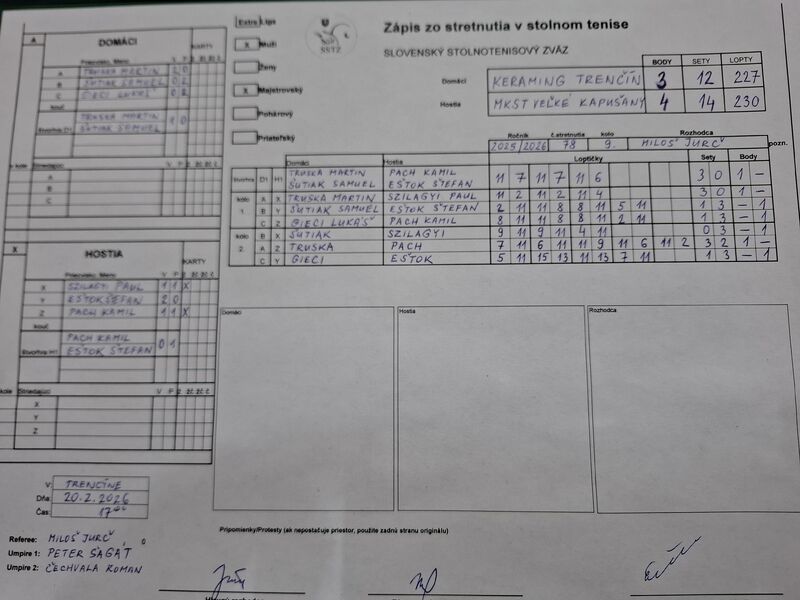 Extra Liga
X Muži
Ženy
X Majstrovský
Pohárový
Priateľský
SSTZ
Zápis zo stretnutia v stolnom tenise
SLOVENSKÝ STOLNOTENISOVÝ ZVÄZ
BODY SETY LOPTY
Domáci KERAMING TRENČÍN 3 12 227
Hostia MKST VEĽKÉ KAPUŠANY 4 14 230
Ročník č.stretnutia kolo Rozhodca
2025/2026 78 9. MILOŠ JURČ pozn.
A DOMÁCI KARTY
Priezvisko, Meno V P
A TRUSKA MARTIN 2 0
B ŠUTIAK SAMUEL 0 2
C GIECI LUKÁŠ 0 2
kouč
Štvorhra D1 TRUSKA MARTIN 1 0
ŠUTIAK SAMUEL
kolo Striedajúci
A
B
C
X HOSTIA KARTY
Priezvisko, Meno V P
X SZILAGYI PAUL 1 1 X
Y EŠTOK ŠTEFAN 2 0
Z PACH KAMIL 1 1 X
kouč
Štvorhra H1 PACH KAMIL 0 1
EŠTOK ŠTEFAN
kolo Striedajúci V P
X
Y
Z
Domáci Hostia Loptičky Sety Body
štvorhra D1 H1 TRUSKA MARTIN PACH KAMIL 11 7 11 7 11 6 3 0 1 –
ŠUTIAK SAMUEL EŠTOK ŠTEFAN
kolo A X TRUSKA MARTIN SZILAGYI PAUL 11 2 11 2 11 4 3 0 1 –
1. B Y ŠUTIAK SAMUEL EŠTOK ŠTEFAN 2 11 11 8 8 11 5 11 1 3 – 1
C Z GIECI LUKÁŠ PACH KAMIL 8 11 11 8 8 11 2 11 1 3 – 1
kolo B X ŠUTIAK SZILAGYI 9 11 9 11 4 11 0 3 – 1
2. A Z TRUSKA PACH 7 11 6 11 11 9 11 6 11 2 3 2 1 –
C Y GIECI EŠTOK 5 11 15 13 11 13 7 11 1 3 – 1
Domáci Hostia Rozhodca
V: TRENČÍNE
Dňa: 20.2.2026
Čas: 17
Pripomienky/Protesty (ak nepostačuje priestor, použite zadnú stranu originálu)
Referee: MILOŠ JURČ
Umpire 1: PETER SAGAT
Umpire 2: ČECHVALA ROMAN